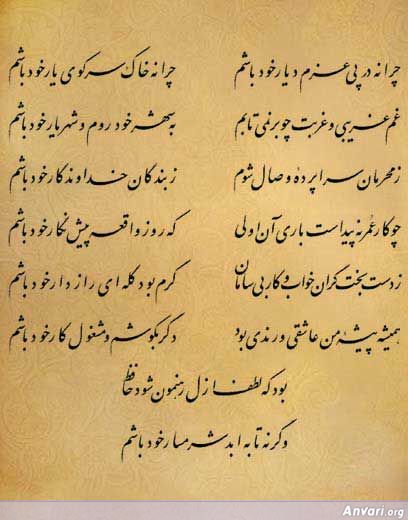 چرا نه در پی عزم دیار خود باشم چرا نه خاک سر کوی یار خود باشم
غم غریبی و غربت چو بر نمی تابم به شهر خود روم و شهریار خود باشم
ز محرمان سراپرده وصال شوم ز بندگان خداوندگار خود باشم
چو کار عمر نه پیداست باری آن اولی که روز واقعه پیش نگار خود باشم
ز دست بخت گران خواب و کار بی سامان گرم بود گله ای رازدار خود باشم
همیشه پیشه من عاشقی و رندی بود دگر بکوشم و مشغول کار خود باشم
بود که لطف ازل رهنمون شود حافظ
وگرنه تا به ابد شرمسار خود باشم
Anvari.org